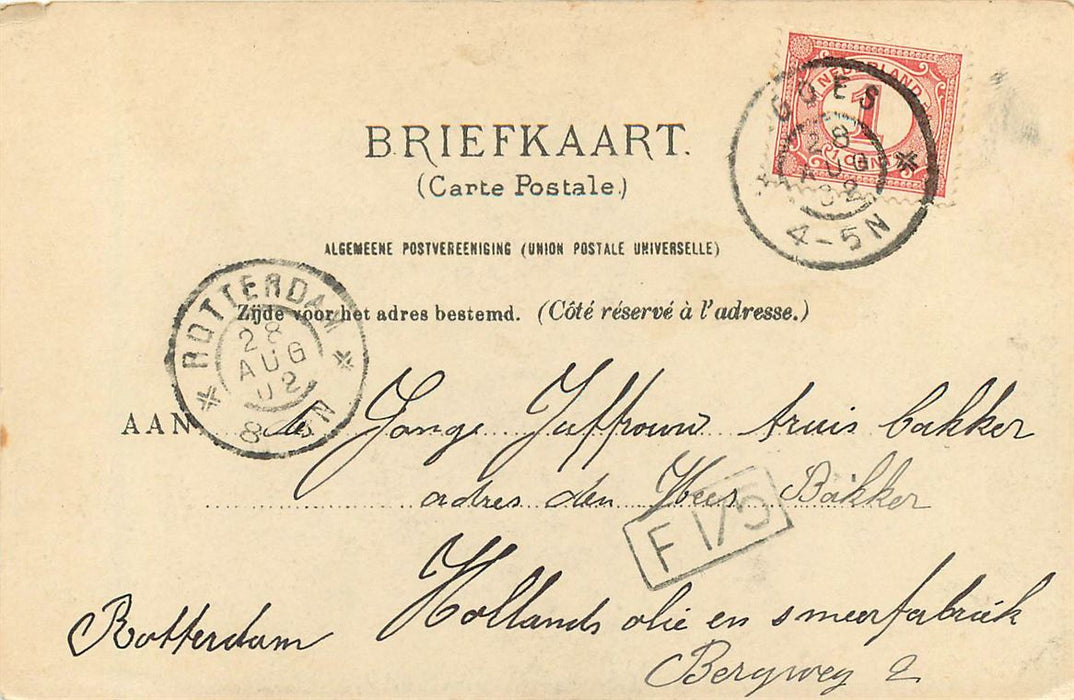 BRIEFKAART.
(Carte Postale.)
ALGEMEENE POSTVEREENIGING (UNION POSTALE UNIVERSELLE)
Zijde voor het adres bestemd. (Côté réservé à l'adresse.)
NEDERLAND
1
CENT
GOES
28
AUG
02
4-5N
ROTTERDAM
28
AUG
02
8- N
AAN de Jonge Juffrouw truis bakker
adres den Heer Bakker
F 175
Hollands olie en smeerfabriek
Rotterdam
Bergweg 2